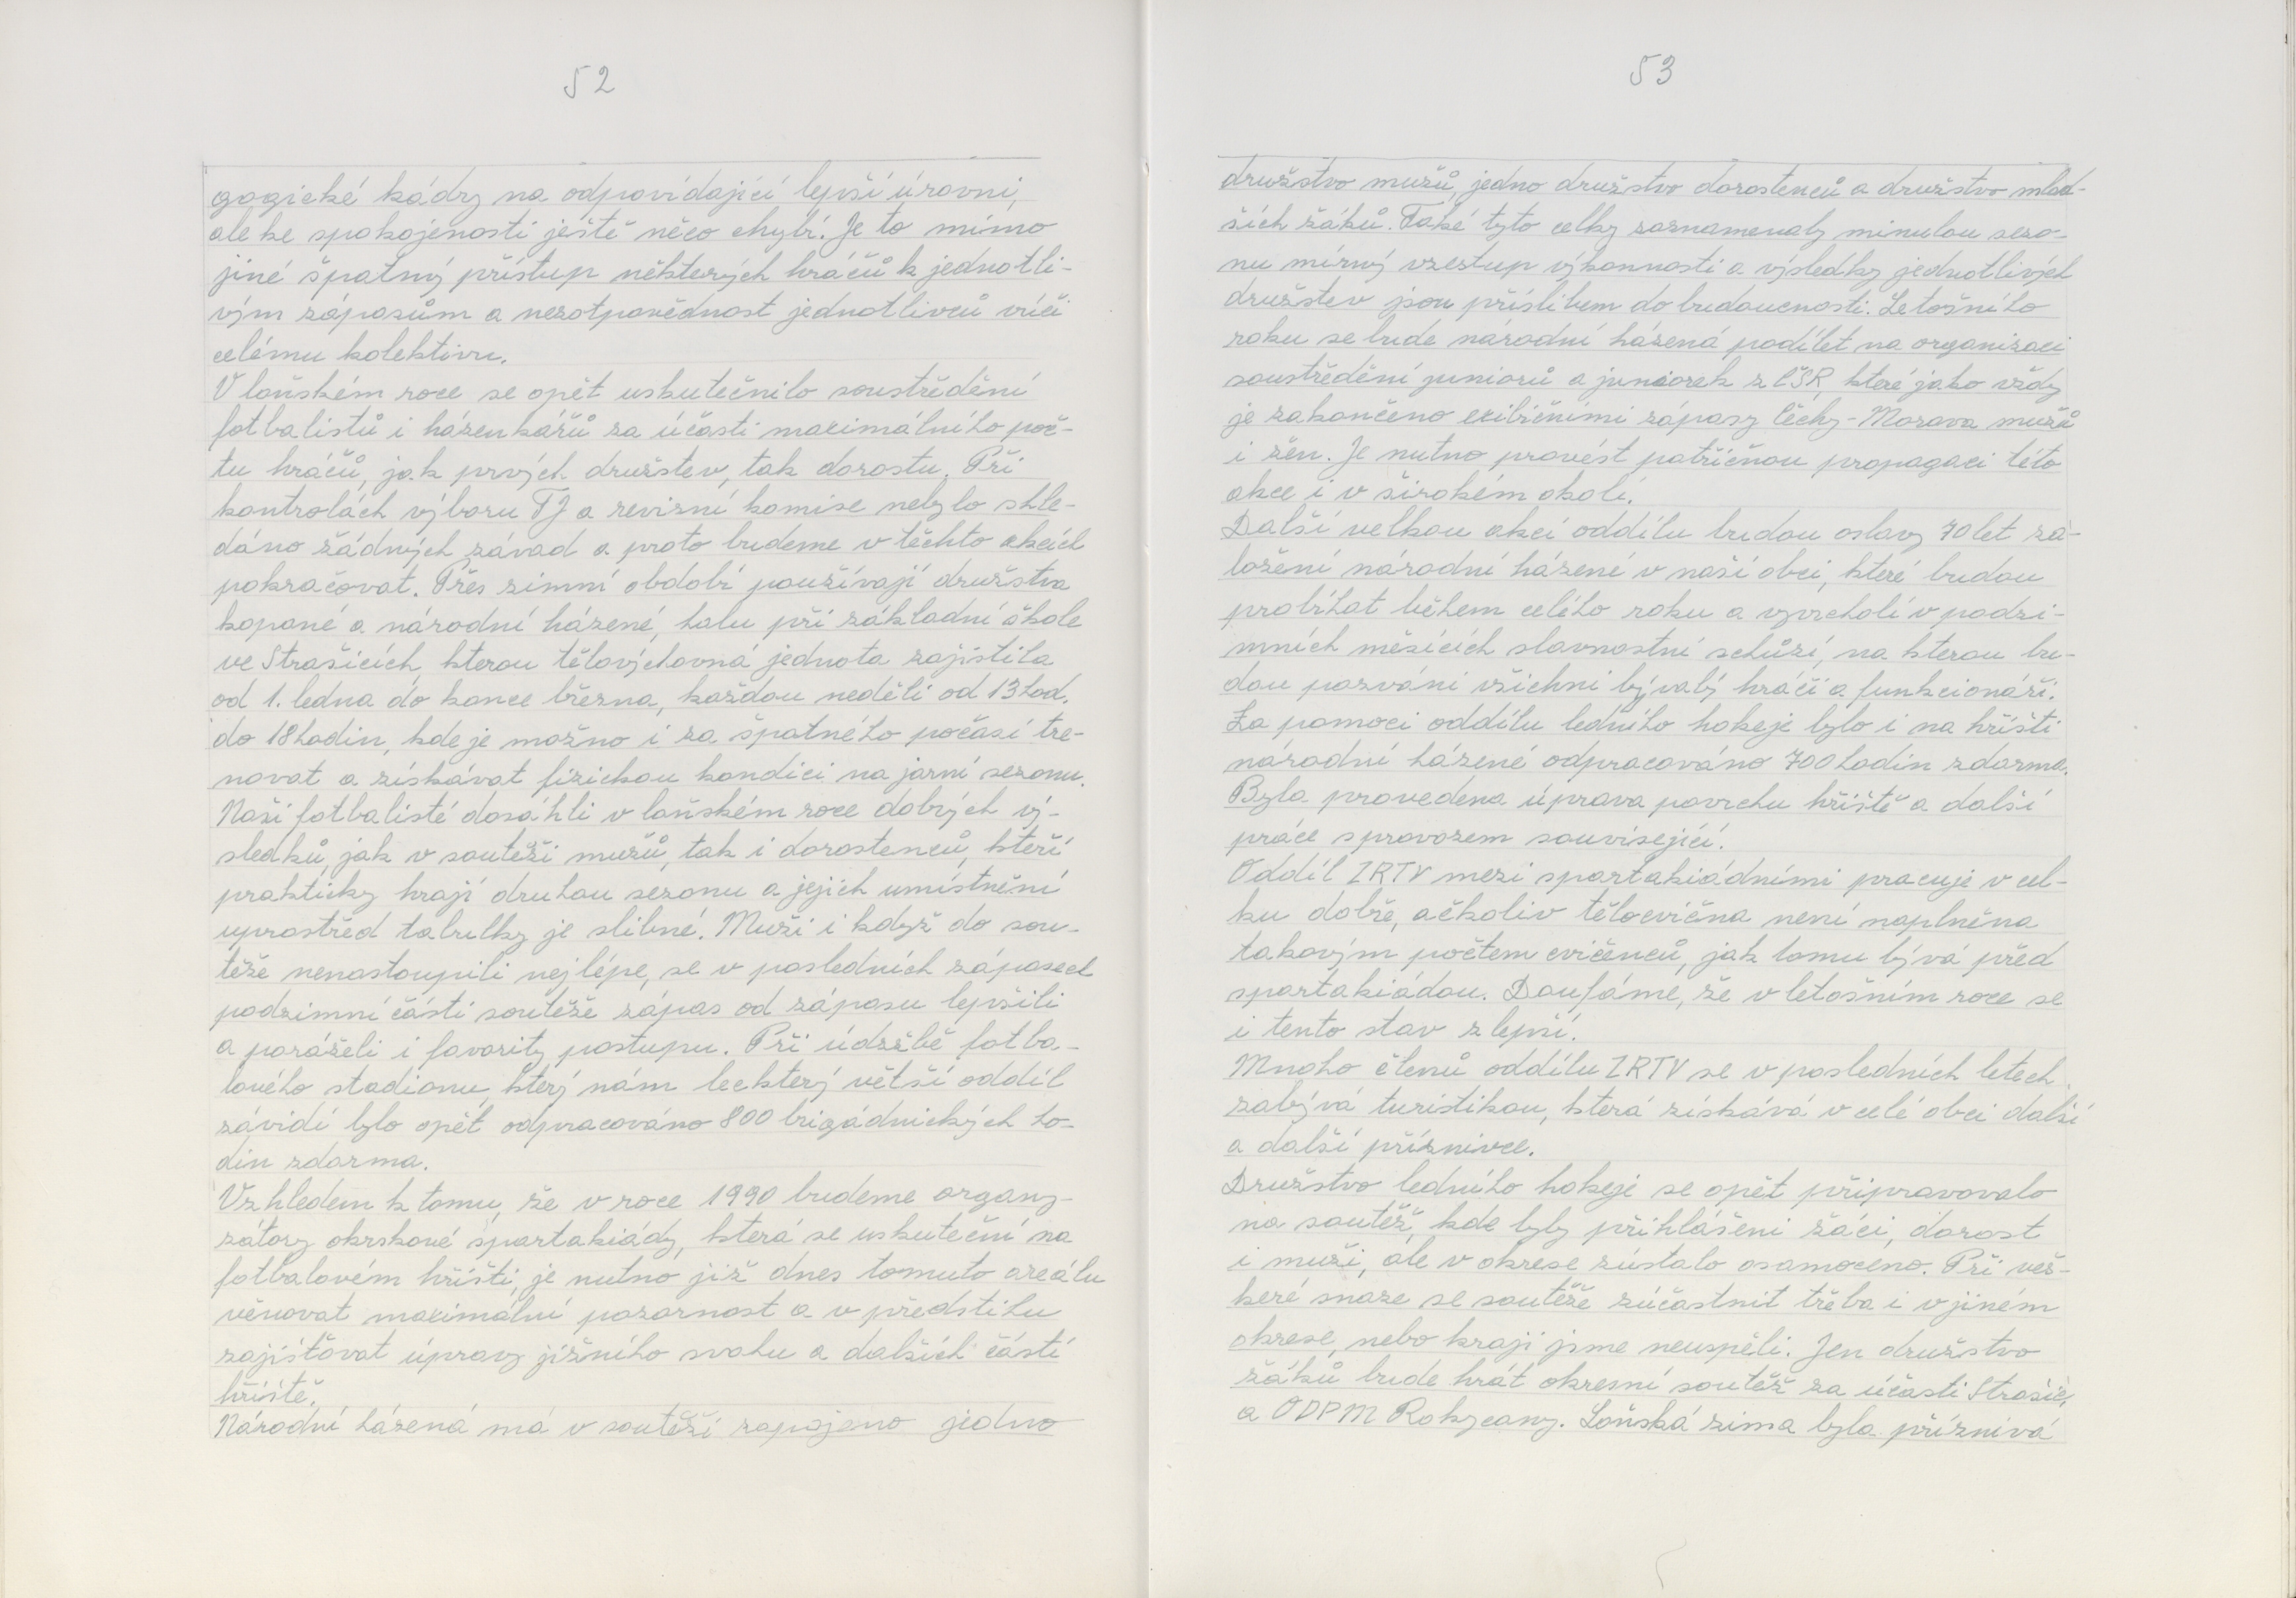 52
gogické kádry na odpovídající lepší úrovni,
ale ke spokojenosti ještě něco chybí. Je to mimo
jiné špatný přístup některých hráčů k jednotli-
vým zápasům a nezotpovědnost jednotlivců vůči
celému kolektivu.
V loňském roce se opět uskutečnilo soustředění
fotbalistů i házenkářů za účasti maximálního poč-
tu hráčů, jak prvých družstev, tak dorostu. Při
kontrolách výboru TJ a revizní komise nebylo shle-
dáno žádných závad a proto budeme v těchto akcích
pokračovat. Přes zimní období používají družstva
kopané a národní házené, halu při základní škole
ve Strašicích, kterou tělovýchovná jednota zajistila
od 1. ledna do konce března, každou neděli od 13 hod.
do 18 hodin, kde je možno i za špatného počasí tre-
novat a získávat fizickou kondici na jarní sezonu.
Naši fotbalisté dosáhli v loňském roce dobrých vý-
sledků, jak v soutěži mužů, tak i dorostenců, kteří
prakticky hrají druhou sezonu a jejich umístnění
uprostřed tabulky je slibné. Muži i když do sou-
těže nenastoupili nejlépe, se v posledních zápasech
podzimní části soutěže zápas od zápasu lepšili
a poráželi i favority postupu. Při údržbě fotba-
lového stadionu, který nám leckterý větší oddíl
závidí bylo opět odpracováno 800 brigádnických ho-
din zdarma.
Vzhledem k tomu, že v roce 1990 budeme organy-
zátory okrskové spartakiády, která se uskuteční na
fotbalovém hřišti, je nutno již dnes tomuto areálu
věnovat maximální pozornost a v předstihu
zajišťovat úpravy jižního svahu a dalších částí
hřiště.
Národní házená má v soutěži zapojeno jedno
53
družstvo mužů, jedno družstvo dorostenců a družstvo mlad-
ších žáků. Také tyto celky zaznamenaly minulou sezo-
nu mírný vzestup výkonnosti a výsledky jednotlivých
družstev jsou příslibem do budoucnosti. Letošního
roku se bude národní házená podílet na organizaci
soustředění juniorů a juniorek z ČSR, které jako vždy
je zakončeno exibičními zápasy Čechy-Morava mužů
i žen. Je nutno provést patřičnou propagaci této
akce i v širokém okolí.
Další velkou akcí oddílu budou oslavy 70 let za-
ložení národní házené v naší obci, které budou
probíhat během celého roku a vyvrcholí v podzi-
mních měsících slavnostní schůzí, na kterou bu-
dou pozváni všichni bývalý hráči a funkcionáři.
Za pomoci oddílu ledního hokeje bylo i na hřišti
národní házené odpracováno 700 hodin zdarma.
Byla provedena úprava povrchu hřiště a další
práce s provozem související.
Oddíl ZRTV mezi spartakiádními pracuje v cel-
ku dobře, ačkoliv tělocvična není naplněna
takovým počtem cvičenců, jak tomu bývá před
spartakiádou. Doufáme, že v letošním roce se
i tento stav zlepší.
Mnoho členů oddílu ZRTV se v posledních letech
zabývá turistikou, která získává v celé obci další
a další příznivce.
Družstvo ledního hokeje se opět připravovalo
na soutěž, kde byly přihlášeni žáci, dorost
i muži, ale v okrese zůstalo osamoceno. Při veš-
keré snaze se soutěže zúčastnit třeba i v jiném
okrese, nebo kraji jsme neuspěli. Jen družstvo
žáků bude hrát okresní soutěž za účasti Strašic,
a ODPM Rokycany. Loňská zima byla příznivá